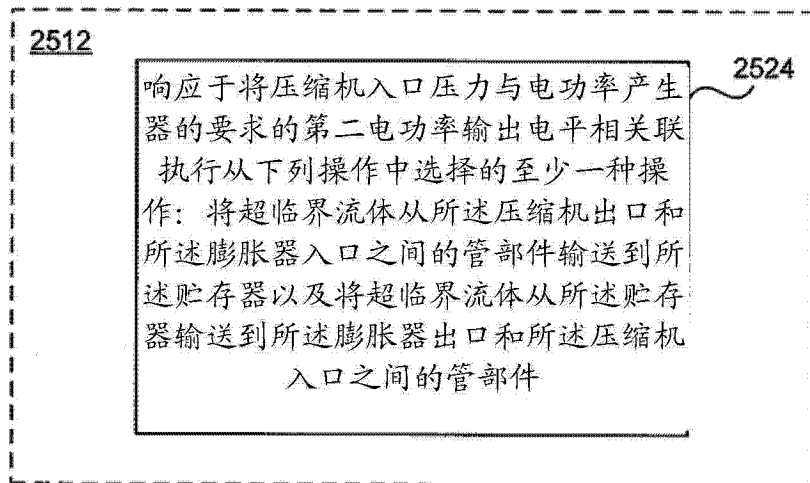 2512
2524
响应于将压缩机入口压力与电功率产生
器的要求的第二电功率输出电平相关联
执行从下列操作中选择的至少一种操
作：将超临界流体从所述压缩机出口和
所述膨胀器入口之间的管部件输送到所
述贮存器以及将超临界流体从所述贮存
器输送到所述膨胀器出口和所述压缩机
入口之间的管部件